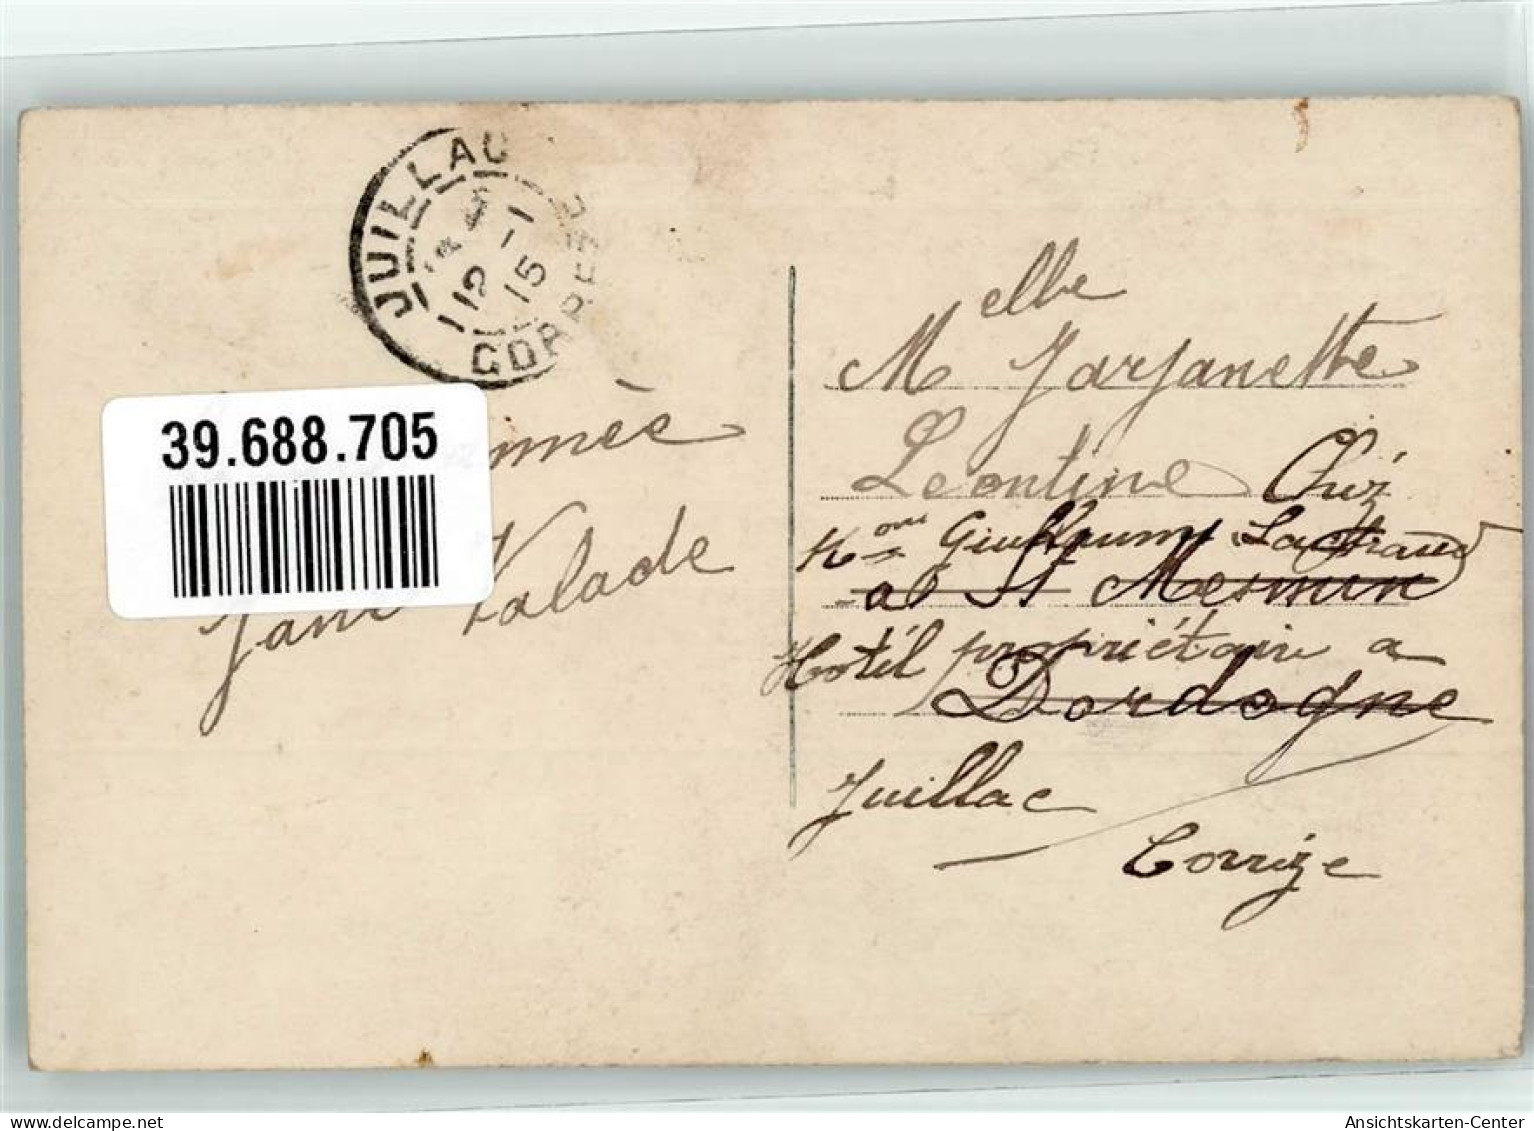 JUILLAC
12 -1
15
CORREZE
39.688.705
nnnèe
Jane Valade
Melle Jarjanette
Leontine Chéz
Guillaume Lachaud
a St Mesmin
Hotél propriétaire a
Dordogne
Juillac
Corrèze
delcampe.net
Ansichtskarten-Center